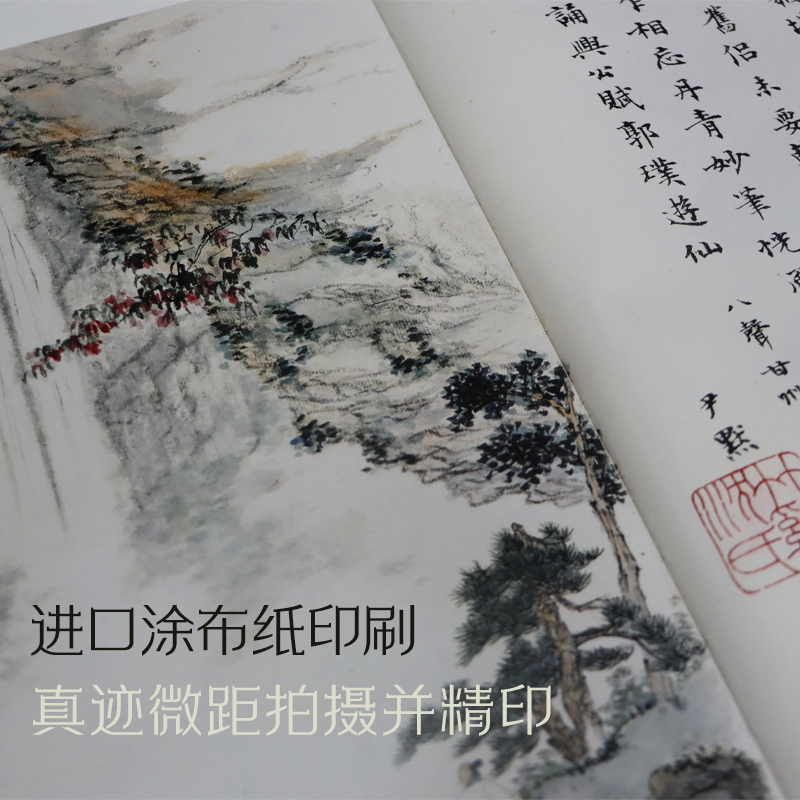 舊侶未要
相忘丹青妙筆恍
誦興公賦郭璞遊仙
八聲甘州
尹默
进口涂布纸印刷
真迹微距拍摄并精印